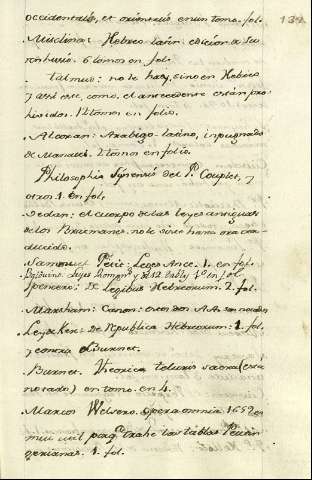 occidentalis, et orientalis en un tomo. fol.
132
Misclina: Hebreo latin edicion de Su
renhusio. 6 tomos en fol.
Talmus: no le hay, sino en Hebreo
y assi este, como el antecedente estàn pro
hividos. 12 tomos en folio.
Alcoran: Arabigo-latino, impugnado
de Maracci. 2 tomos en folio.
Philosophia Synensis del P. Couplet, y
otros 1. en fol.
Vedan: el cuerpo de las leyes antiguas
de los Bracmanes. no le se si hasta ora tra
ducido.
Samouel Petit: Leges Atticæ. 1. en fol.
y 12 tabl. 1º en fol.
Spencero: De Legibus Hebreorum. 2. fol.
Marsham: Canon:
Leydeker: De Republica Hebreorum: 1. fol.
y contra Burnet.
Burnet. Theorica teluris sacra (està
notado) en tomo. en 4.
Marcos Welsero. Opera omnia 1682 en
trahe las tablas Peutin
gerianas. 1. fol.